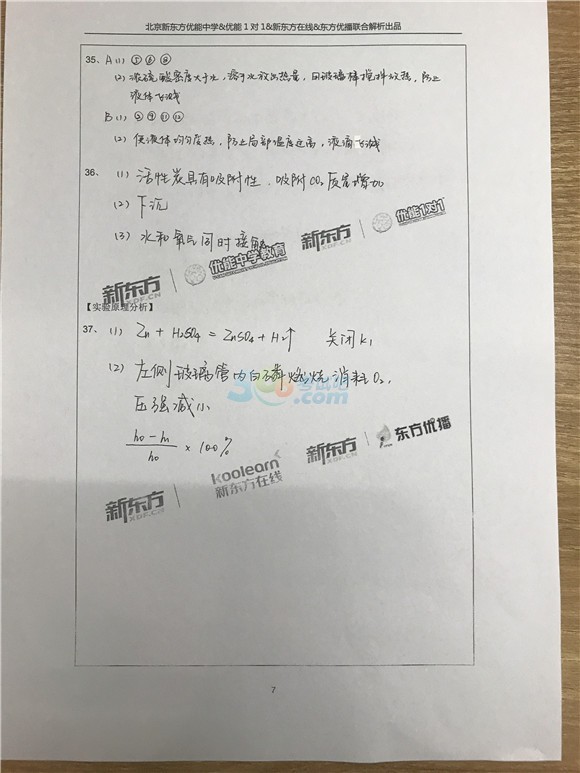 北京新东方优能中学&优能1对1&新东方在线&东方优播联合解析出品
35. A (1) ⑤⑥⑧
(2) 浓硫酸密度大于水,溶于水放出热量,用玻璃棒搅拌散热,防止
液体飞溅
B (1) ②⑨⑪⑫
(2) 使液体均匀受热,防止局部温度过高,液滴飞溅
36. (1) 活性炭具有吸附性、吸附CO₂质量增加
(2) 下沉
(3) 水和氧气同时接触
新东方 XDF.CN 优能中学教育 新东方 XDF.CN 优能1对1
【实验原理分析】
37. (1) Zn + H₂SO₄ = ZnSO₄ + H₂↑ 关闭K₁
(2) 左侧玻璃管内白磷燃烧消耗O₂,
压强减小
365考试吧
(h₀-h₁)/h₀ × 100%
新东方 XDF.CN koolearn 新东方在线 新东方 XDF.CN 东方优播
7